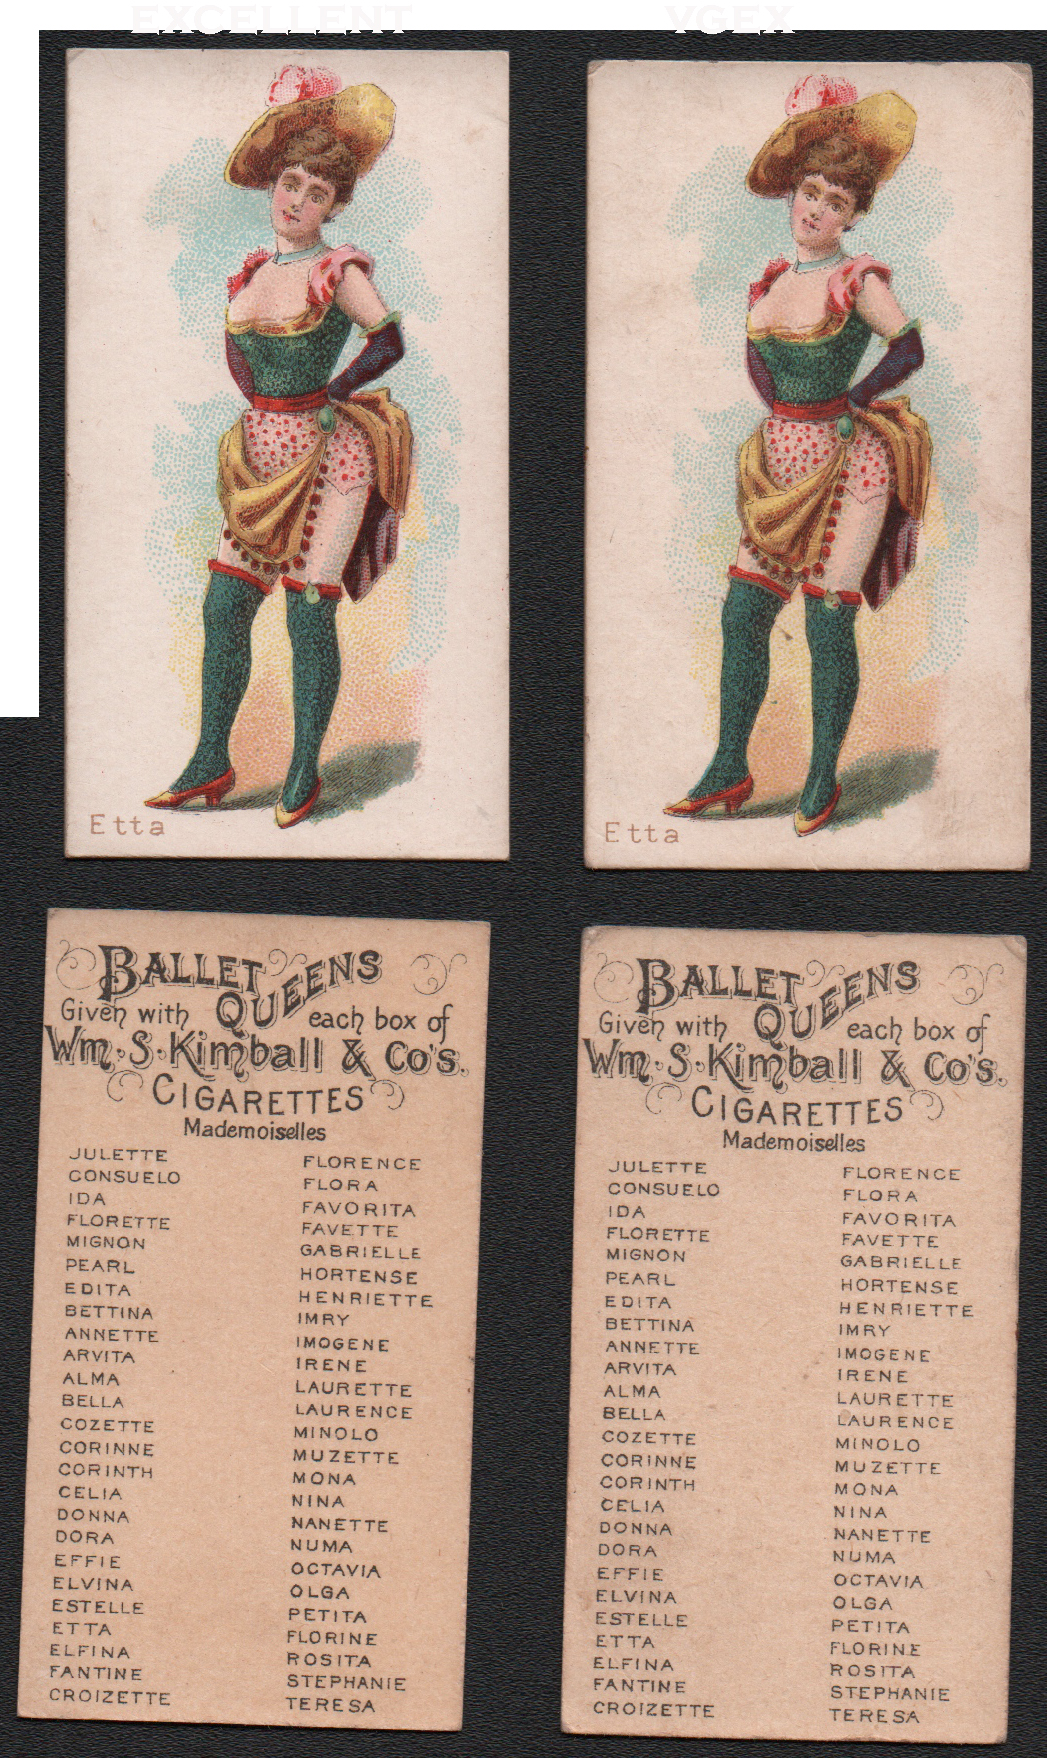 EXCELLENT
VGEX
Etta
Etta
BALLET QUEENS
Given with each box of
Wm. S. Kimball & Co's.
CIGARETTES
Mademoiselles
JULETTE
CONSUELO
IDA
FLORETTE
MIGNON
PEARL
EDITA
BETTINA
ANNETTE
ARVITA
ALMA
BELLA
COZETTE
CORINNE
CORINTH
CELIA
DONNA
DORA
EFFIE
ELVINA
ESTELLE
ETTA
ELFINA
FANTINE
CROIZETTE
FLORENCE
FLORA
FAVORITA
FAVETTE
GABRIELLE
HORTENSE
HENRIETTE
IMRY
IMOGENE
IRENE
LAURETTE
LAURENCE
MINOLO
MUZETTE
MONA
NINA
NANETTE
NUMA
OCTAVIA
OLGA
PETITA
FLORINE
ROSITA
STEPHANIE
TERESA
BALLET QUEENS
Given with each box of
Wm. S. Kimball & Co's.
CIGARETTES
Mademoiselles
JULETTE
CONSUELO
IDA
FLORETTE
MIGNON
PEARL
EDITA
BETTINA
ANNETTE
ARVITA
ALMA
BELLA
COZETTE
CORINNE
CORINTH
CELIA
DONNA
DORA
EFFIE
ELVINA
ESTELLE
ETTA
ELFINA
FANTINE
CROIZETTE
FLORENCE
FLORA
FAVORITA
FAVETTE
GABRIELLE
HORTENSE
HENRIETTE
IMRY
IMOGENE
IRENE
LAURETTE
LAURENCE
MINOLO
MUZETTE
MONA
NINA
NANETTE
NUMA
OCTAVIA
OLGA
PETITA
FLORINE
ROSITA
STEPHANIE
TERESA